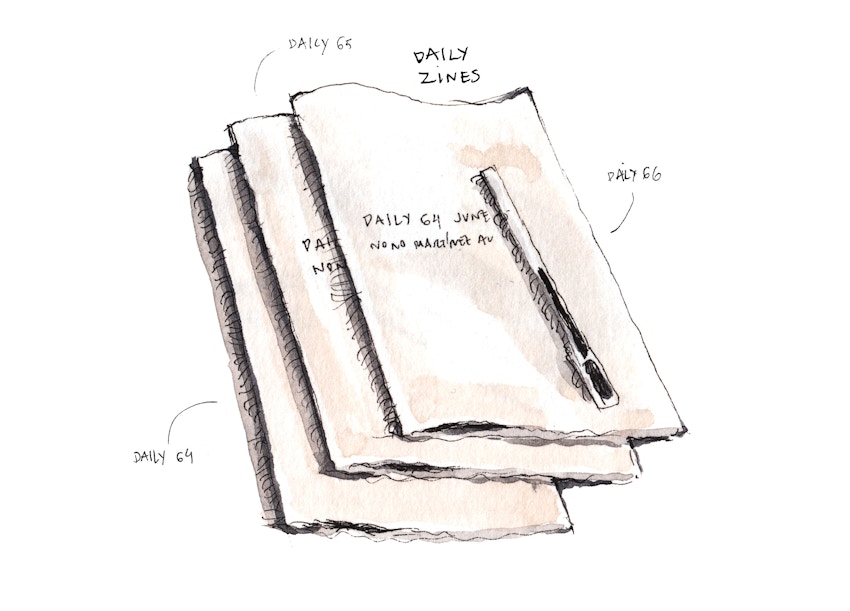 DAILY 65
DAILY
ZINES
DAILY 66
DAILY 64 JUNE
NONO MARTÍNEZ AU
DAI
NON
DAILY 64